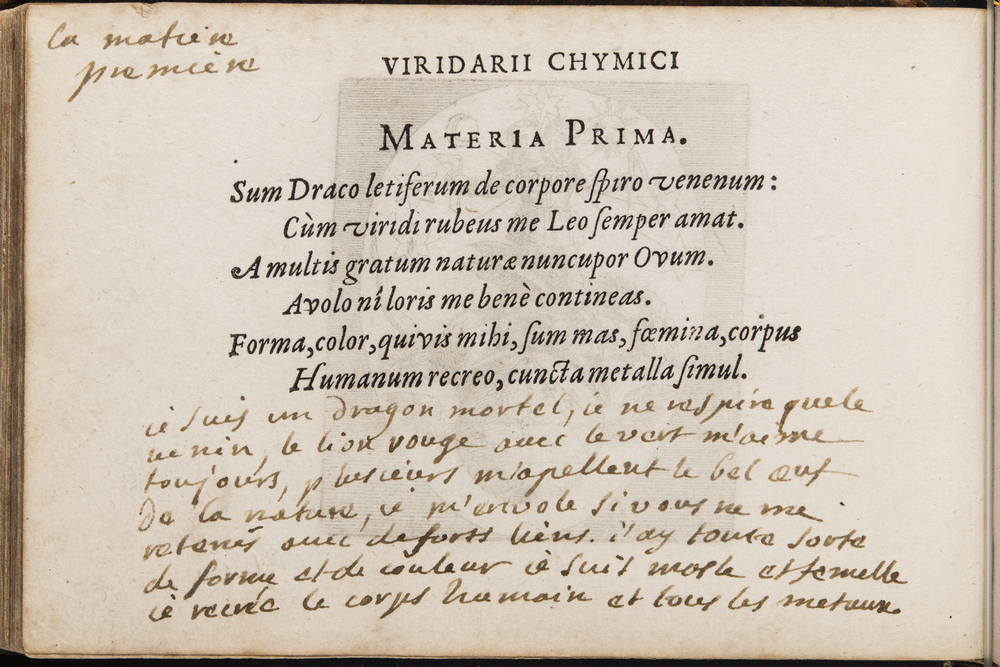 la matiere
premiere
VIRIDARII CHYMICI
MATERIA PRIMA.
Sum Draco letiferum de corpore ſpiro venenum:
Cùm viridi rubeus me Leo ſemper amat.
A multis gratum naturæ nuncupor Ovum.
Avolo nî loris me benè contineas.
Forma, color, quivis mihi, ſum mas, fœmina, corpus
Humanum recreo, cuncta metalla ſimul.
ie suis un dragon mortel, ie ne respire que le
venin, le lion rouge avec le vert m'aime
toujours, plusieurs m'apellent le bel œuf
de la nature, ie m'envole si vous ne me
retenés avec de forts liens. i'ay toute sorte
de forme et de couleur ie suis masle et femelle
ie recrée le corps humain et tous les metaux.